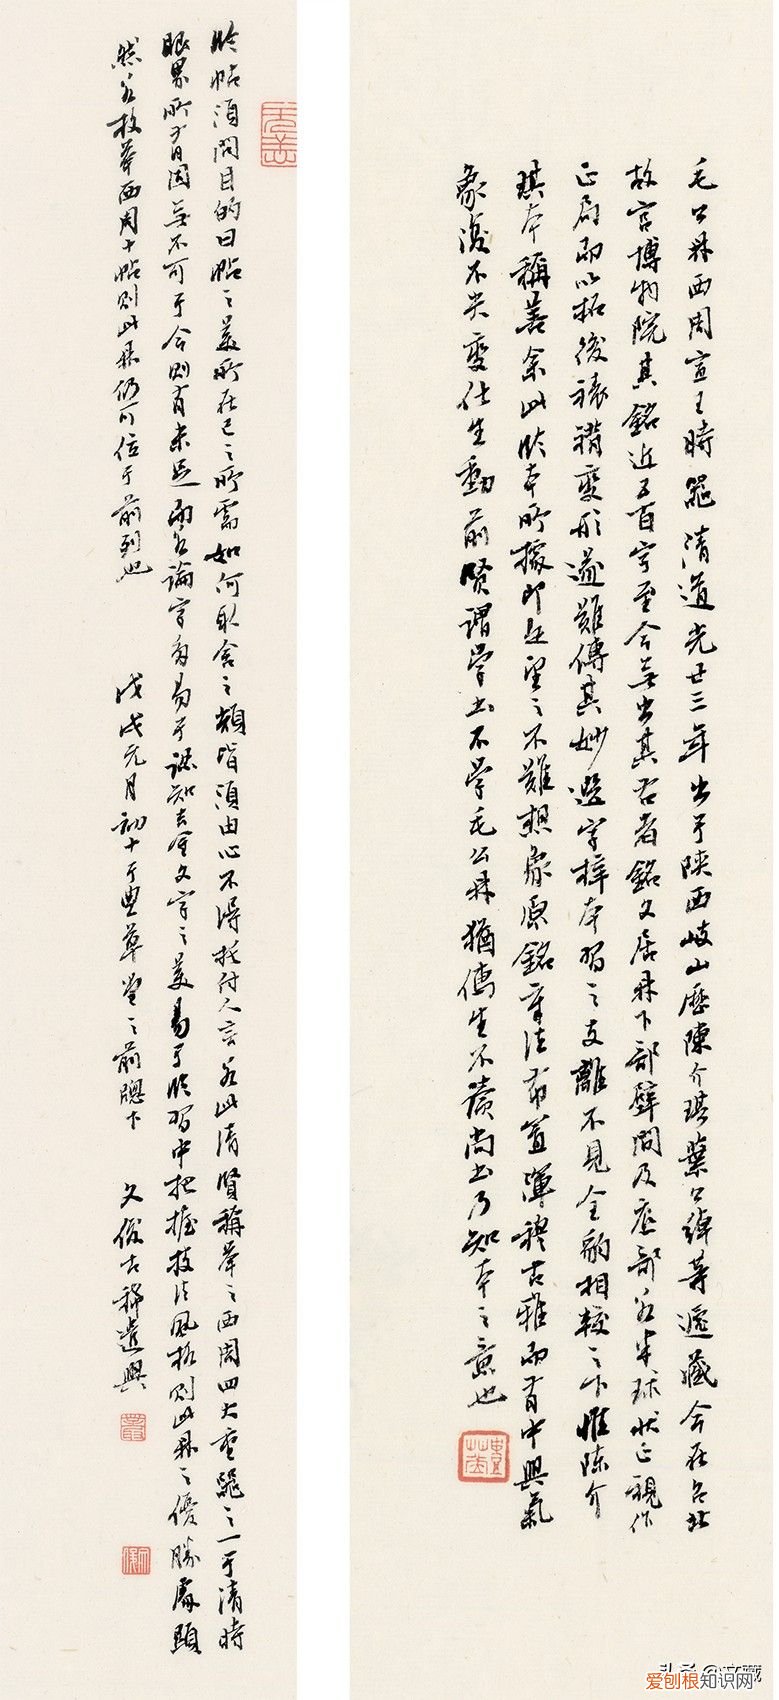 毛公鼎西周宣王時器清道光廿三年出于陝西岐山歷陳介琪葉公綽等遞藏今在台北
故宮博物院其銘近五百字至今無出其右者銘文居鼎下部壁間及底部為半球狀正視作
正扇而以拓後裱褙變形遂難傳其妙選字擇本習之支離不見全豹相較之下惟陈介
琪本稱善余此臨本所據即是望之不難想象原銘章法布置渾穆古雅而有中興氣
象復不失變化生動前賢謂學書不學毛公鼎猶儒生不讀尚書乃知本之意也
臨帖須問目的曰帖之美所在己之所需如何取舍之類皆須由心不得托付人言若此清賢稱舉之西周四大重器之一于清時
眼界所有固無不可于今則有未足而名論字多易于認知古金文字之美易于臨習中把握技法風格則此鼎之優勝處顯
然若枚舉西周十帖則此鼎仍可位于前列也
戊戌元月初十于豊草堂之前牕下 文俊古稀遣興
头条@文藏
爱刨根知识网